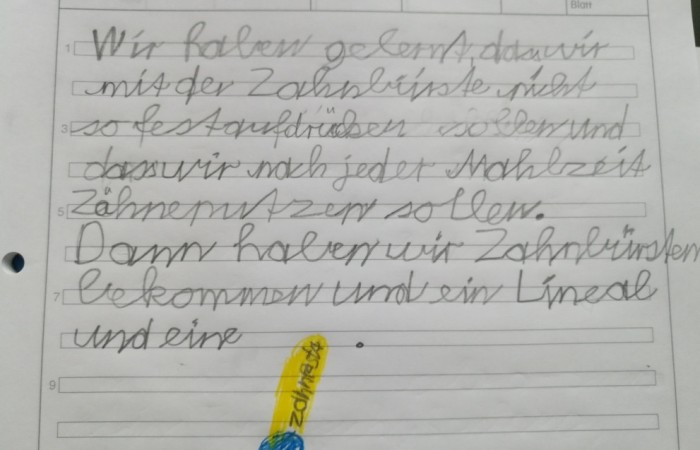 Blatt
1 Wir haben gelernt, dass wir
mit der Zahnbürste nicht
3 so fest aufdrücken sollen und
dass wir nach jeder Mahlzeit
5 Zähneputzen sollen.
Dann haben wir Zahnbürsten
7 bekommen und ein Lineal
und eine .
9